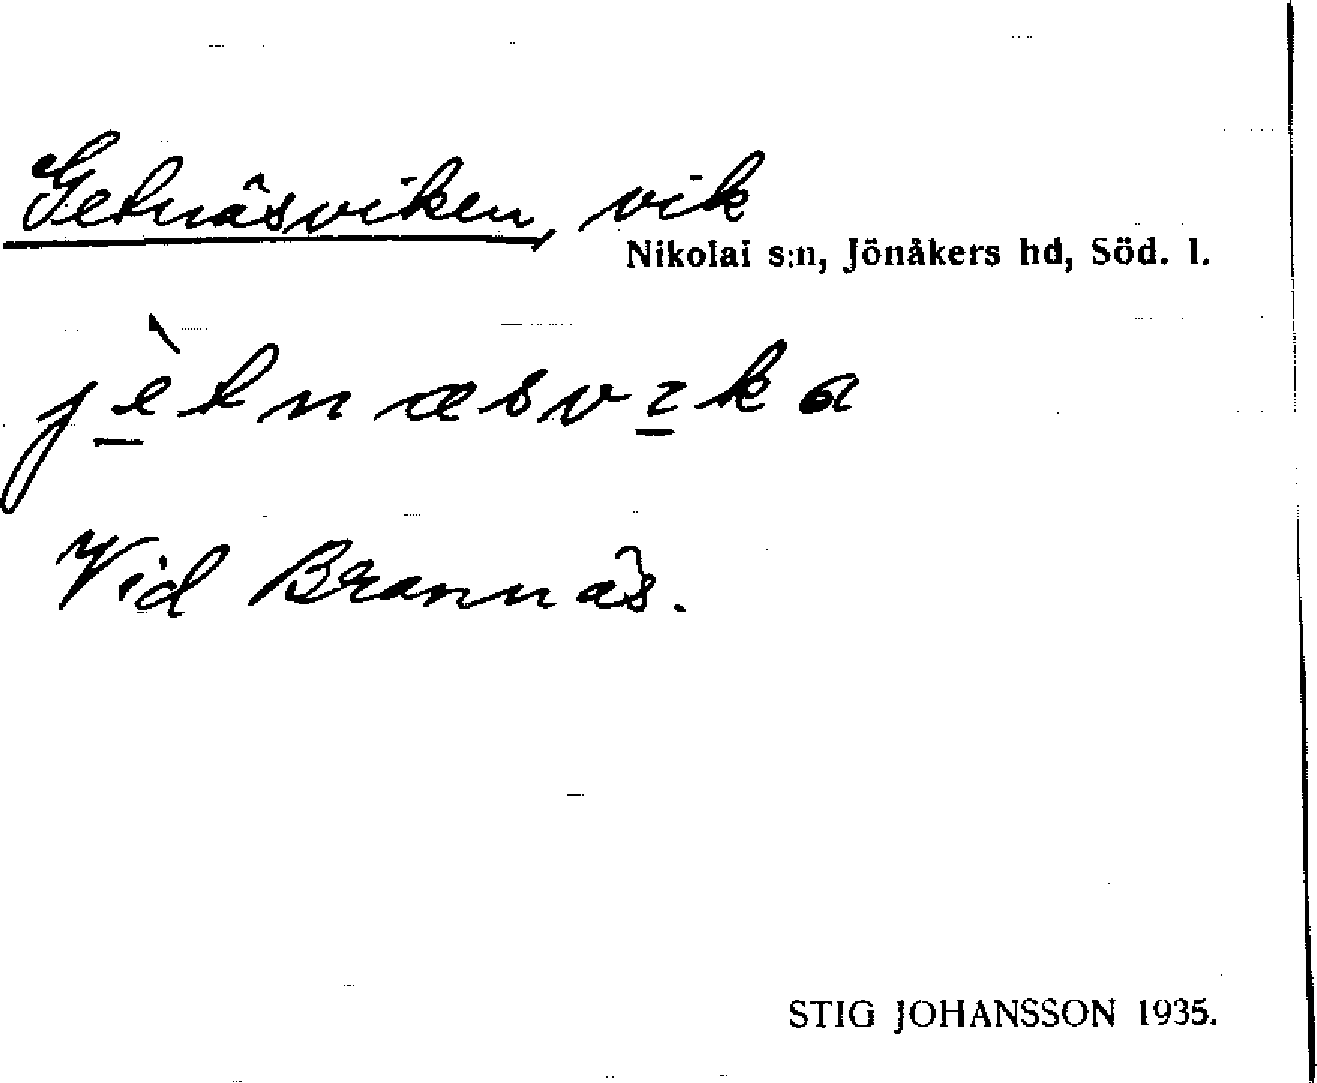 Getnäsviken, vik
Nikolai s:n, Jönåkers hd, Söd. l.
jètnæsvıka
Vid Brannäs.
STIG JOHANSSON 1935.